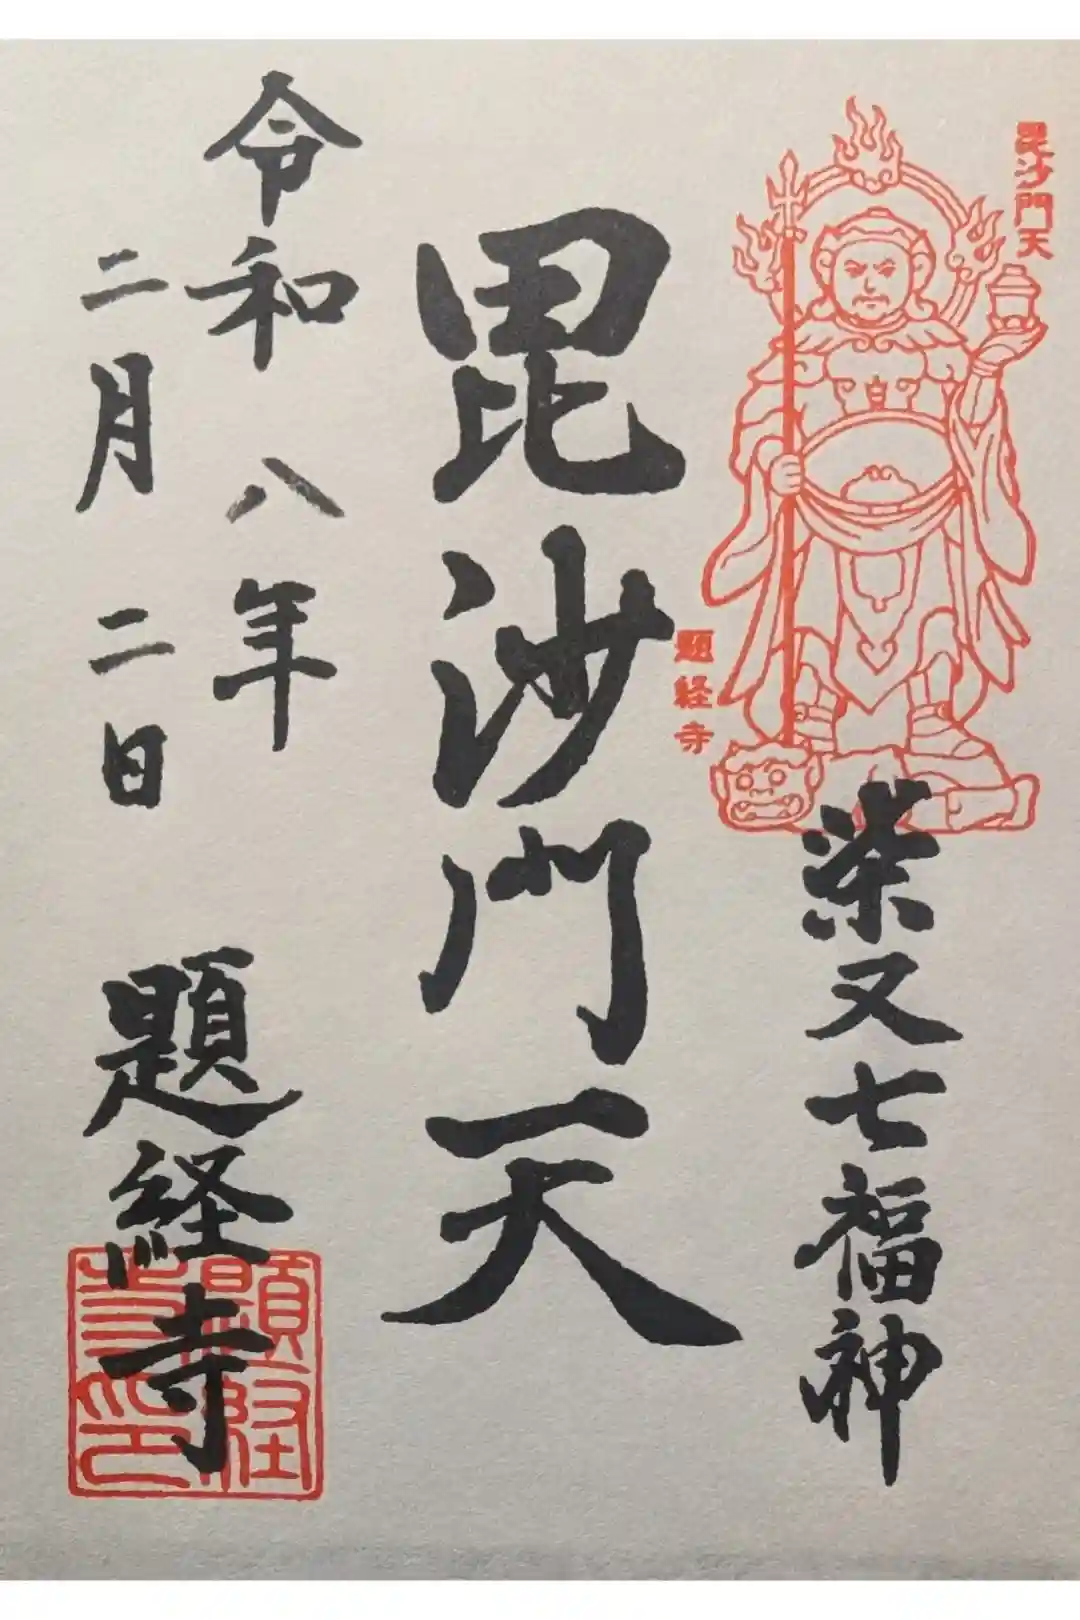 毘沙門天
柴又七福神
題経寺
毘沙門天
令和八年
二月二日
題経寺
題経寺印